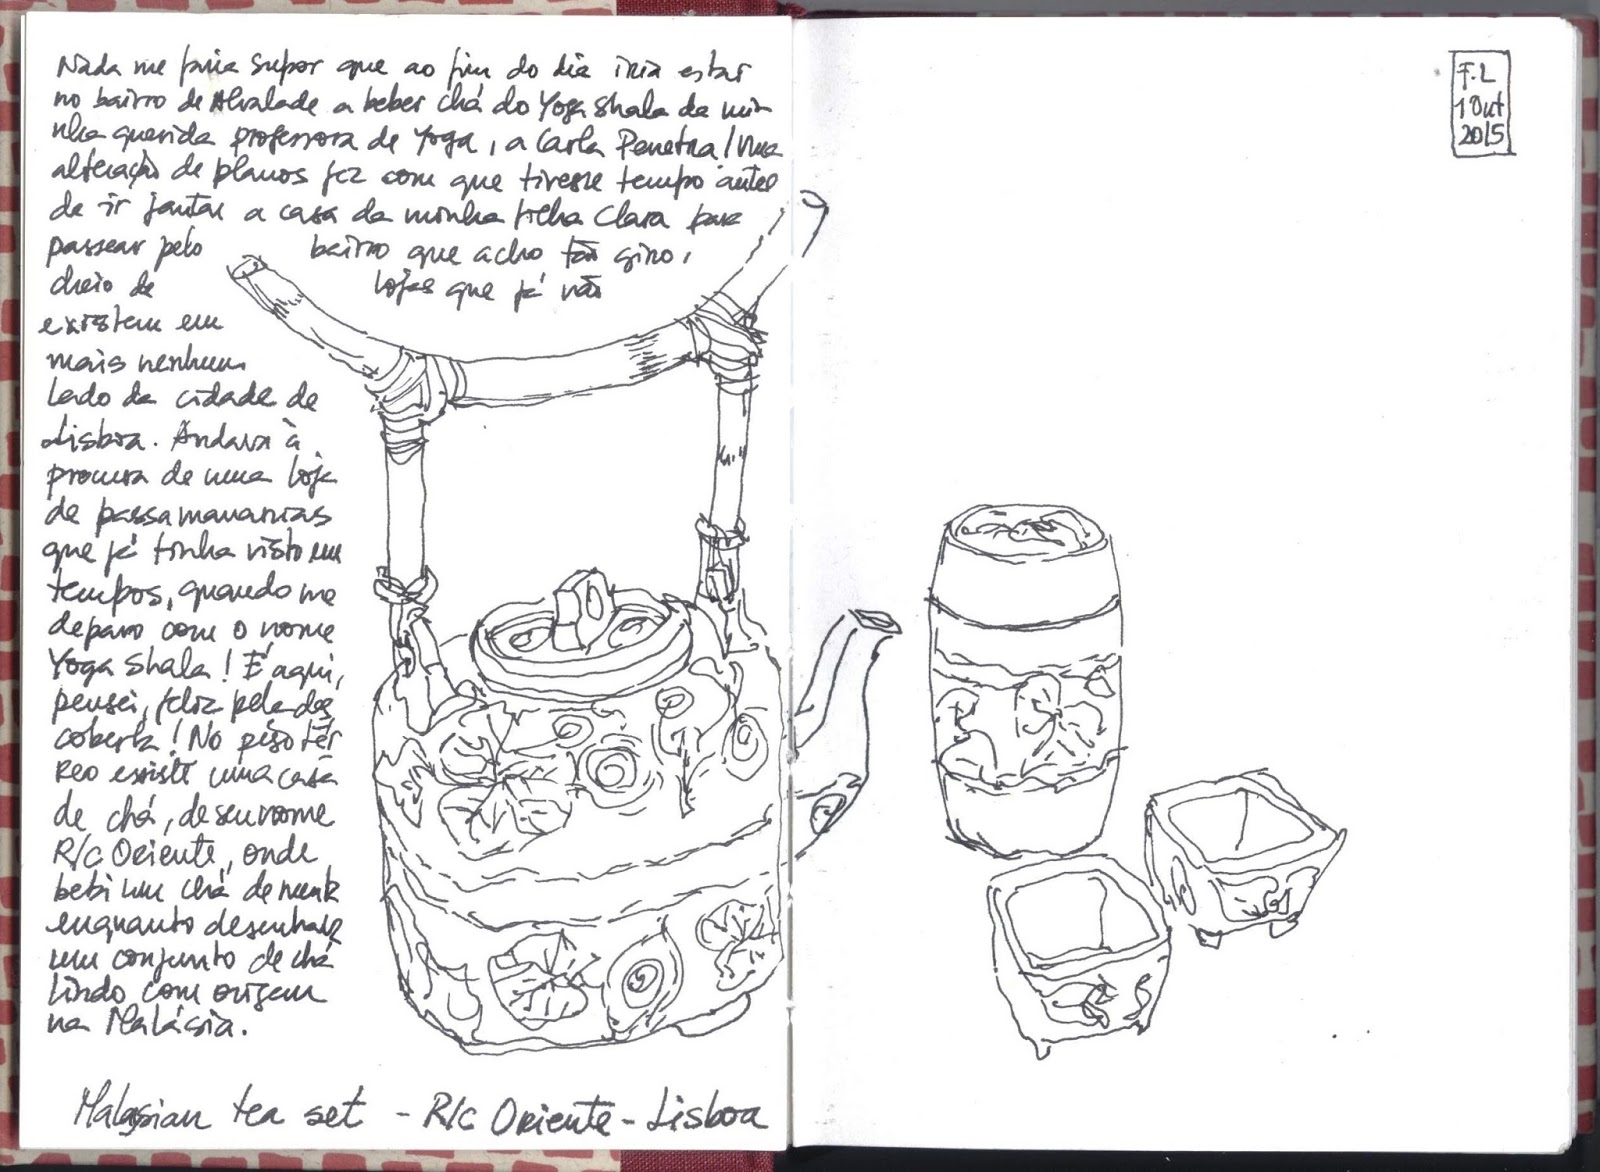 Nada me faria supor que ao fim do dia iria estar
no bairro de Alvalade a beber chá do Yoga Shala da mi-
nha querida professora de Yoga, a Carla Penetra! Uma
alteração de planos fez com que tivesse tempo antes
de ir jantar a casa da minha filha Clara para
passear pelo bairro que acho tão giro,
cheio de lojas que já não
existem em
mais nenhum
lado da cidade de
Lisboa. Andava à
procura de uma loja
de passamanarias
que já tinha visto em
tempos, quando me
deparo com o nome
Yoga Shala! É aqui,
pensei, feliz pela des
coberta! No piso tér
reo existe uma casa
de chá, de seu nome
R/c Oriente, onde
bebi um chá de menta
enquanto desenhava
um conjunto de chá
lindo com origem
na Malásia.
Malasian tea set - R/c Oriente - Lisboa
F.L
1 Out
2015